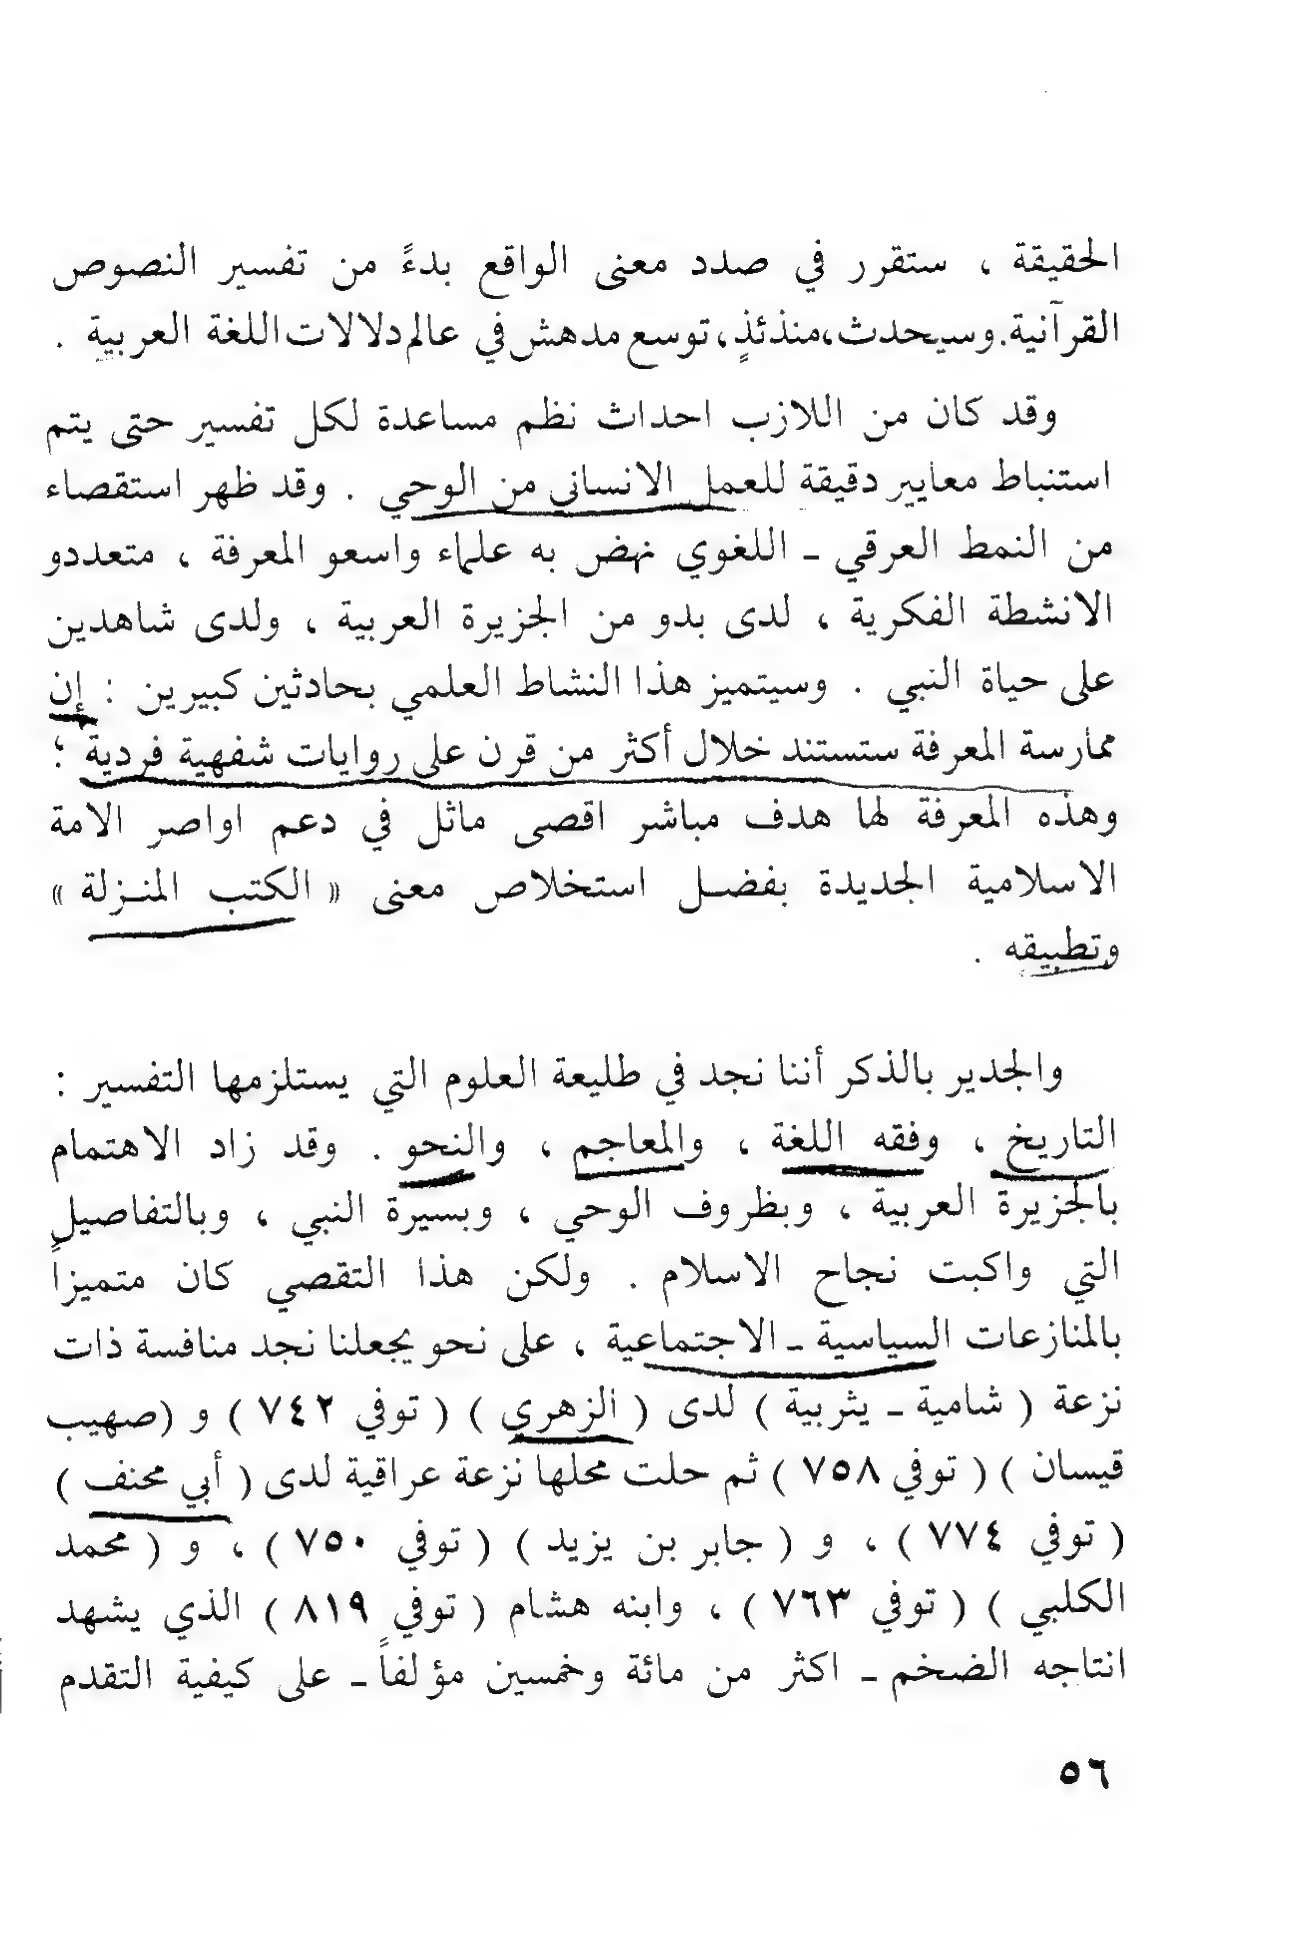 الحقيقة ، ستقرر في صدد معنى الواقع بدءً من تفسير النصوص
القرآنية. وسيحدث، منذئذٍ، توسع مدهش في عالم دلالات اللغة العربية .
وقد كان من اللازب احداث نظم مساعدة لكل تفسير حتى يتم
استنباط معايير دقيقة للعمل الانساني من الوحي . وقد ظهر استقصاء
من النمط العرقي ـ اللغوي نهض به علماء واسعو المعرفة ، متعددو
الانشطة الفكرية ، لدى بدو من الجزيرة العربية ، ولدى شاهدين
على حياة النبي . وسيتميز هذا النشاط العلمي بحادثين كبيرين : إن
ممارسة المعرفة ستستند خلال أكثر من قرن على روايات شفهية فردية ؛
وهذه المعرفة لها هدف مباشر اقصى ماثل في دعم اواصر الامة
الاسلامية الجديدة بفضل استخلاص معنى « الكتب المنزلة »
وتطبيقه .
والجدير بالذكر أننا نجد في طليعة العلوم التي يستلزمها التفسير :
التاريخ ، وفقه اللغة ، والمعاجم ، والنحو . وقد زاد الاهتمام
بالجزيرة العربية ، وبظروف الوحي ، وبسيرة النبي ، وبالتفاصيل
التي واكبت نجاح الاسلام . ولكن هذا التقصي كان متميزاً
بالمنازعات السياسية ـ الاجتماعية ، على نحو يجعلنا نجد منافسة ذات
نزعة ( شامية ـ يثربية ) لدى ( الزهري ) ( توفي ٧٤٢ ) و (صهيب
قيسان ) ( توفي ٧٥٨ ) ثم حلت محلها نزعة عراقية لدى ( أبي محنف )
( توفي ٧٧٤ ) ، و ( جابر بن يزيد ) ( توفي ٧٥٠ ) ، و ( محمد
الكلبي ) ( توفي ٧٦٣ ) ، وابنه هشام ( توفي ٨١٩ ) الذي يشهد
انتاجه الضخم ـ اكثر من مائة وخمسين مؤلفاً ـ على كيفية التقدم
٥٦